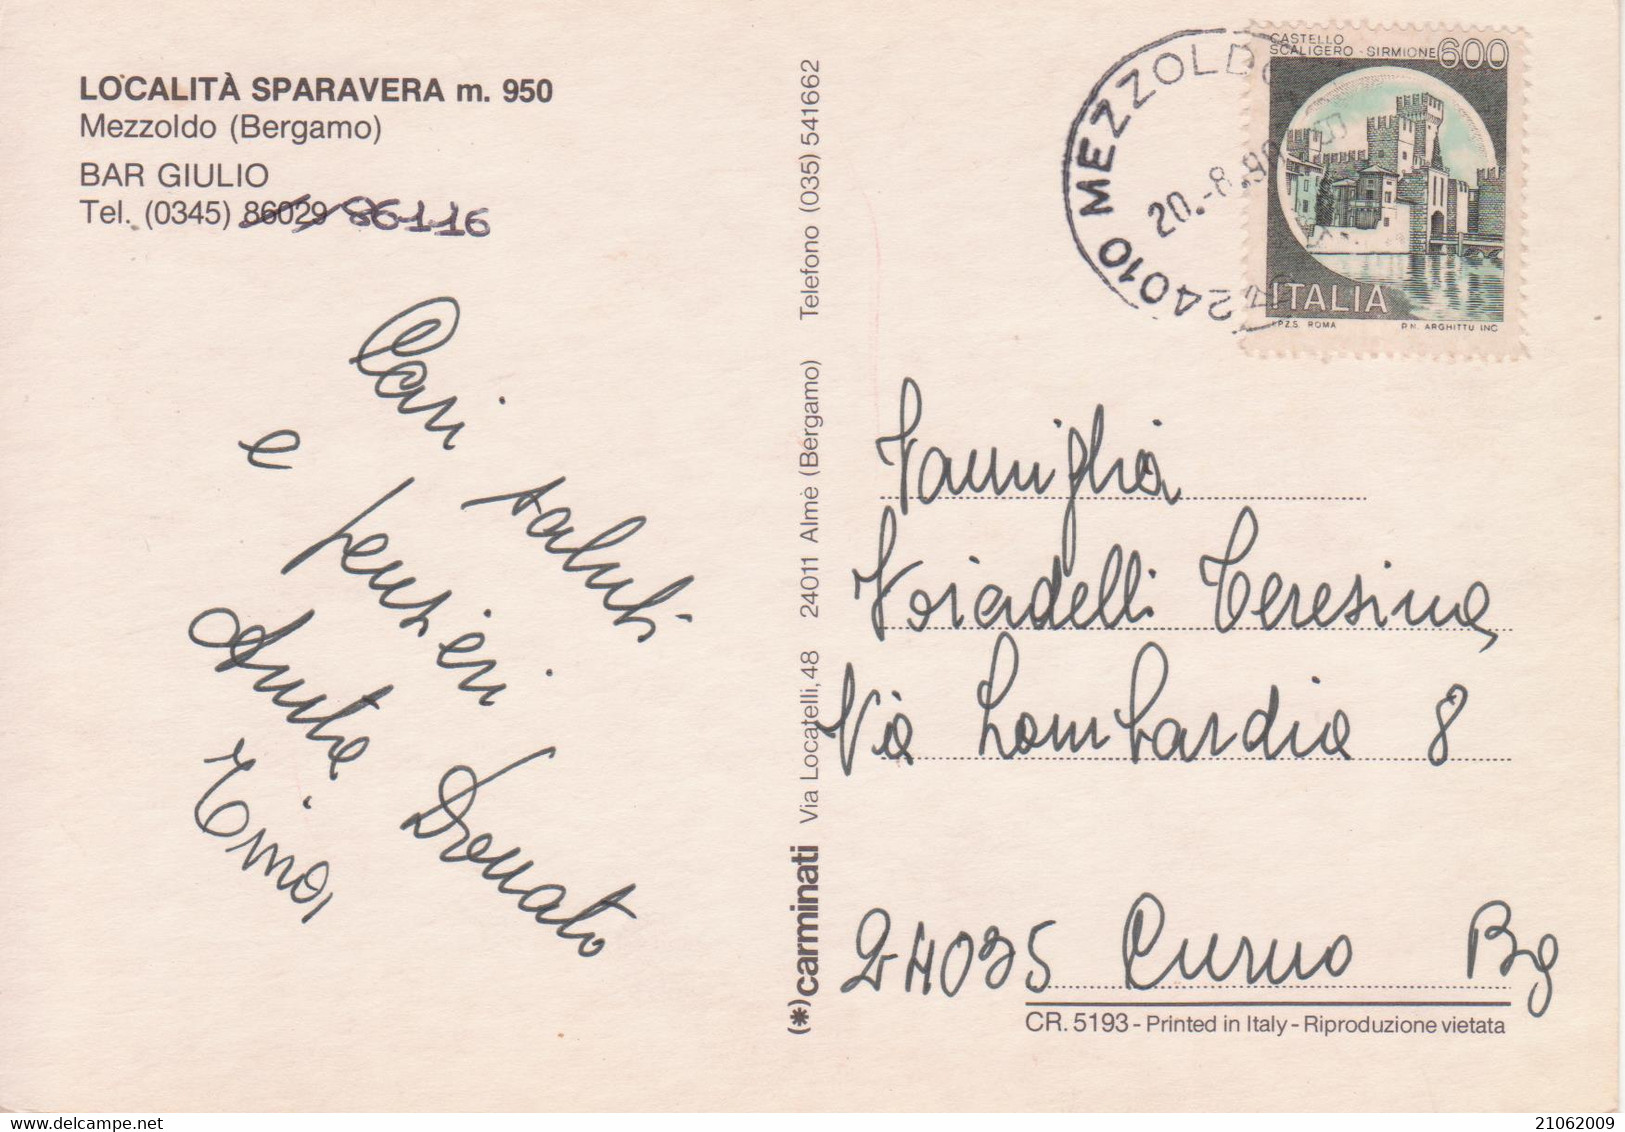 LOCALITÀ SPARAVERA m. 950
Mezzoldo (Bergamo)
BAR GIULIO
Tel. (0345) 86029 86116
Cari saluti
e pensieri
Anita Donato
Tino
(*)carminati Via Locatelli, 48 24011 Almè (Bergamo) Telefono (035) 541662
24010 MEZZOLDO
20.-8.90
CASTELLO
SCALIGERO - SIRMIONE 600
ITALIA
I.P.Z.S. ROMA P.N. ARGHITTU INC
Famiglia
Teresina
Via Lombardia 8
24035 Curno Bg
CR. 5193 - Printed in Italy - Riproduzione vietata
21062009